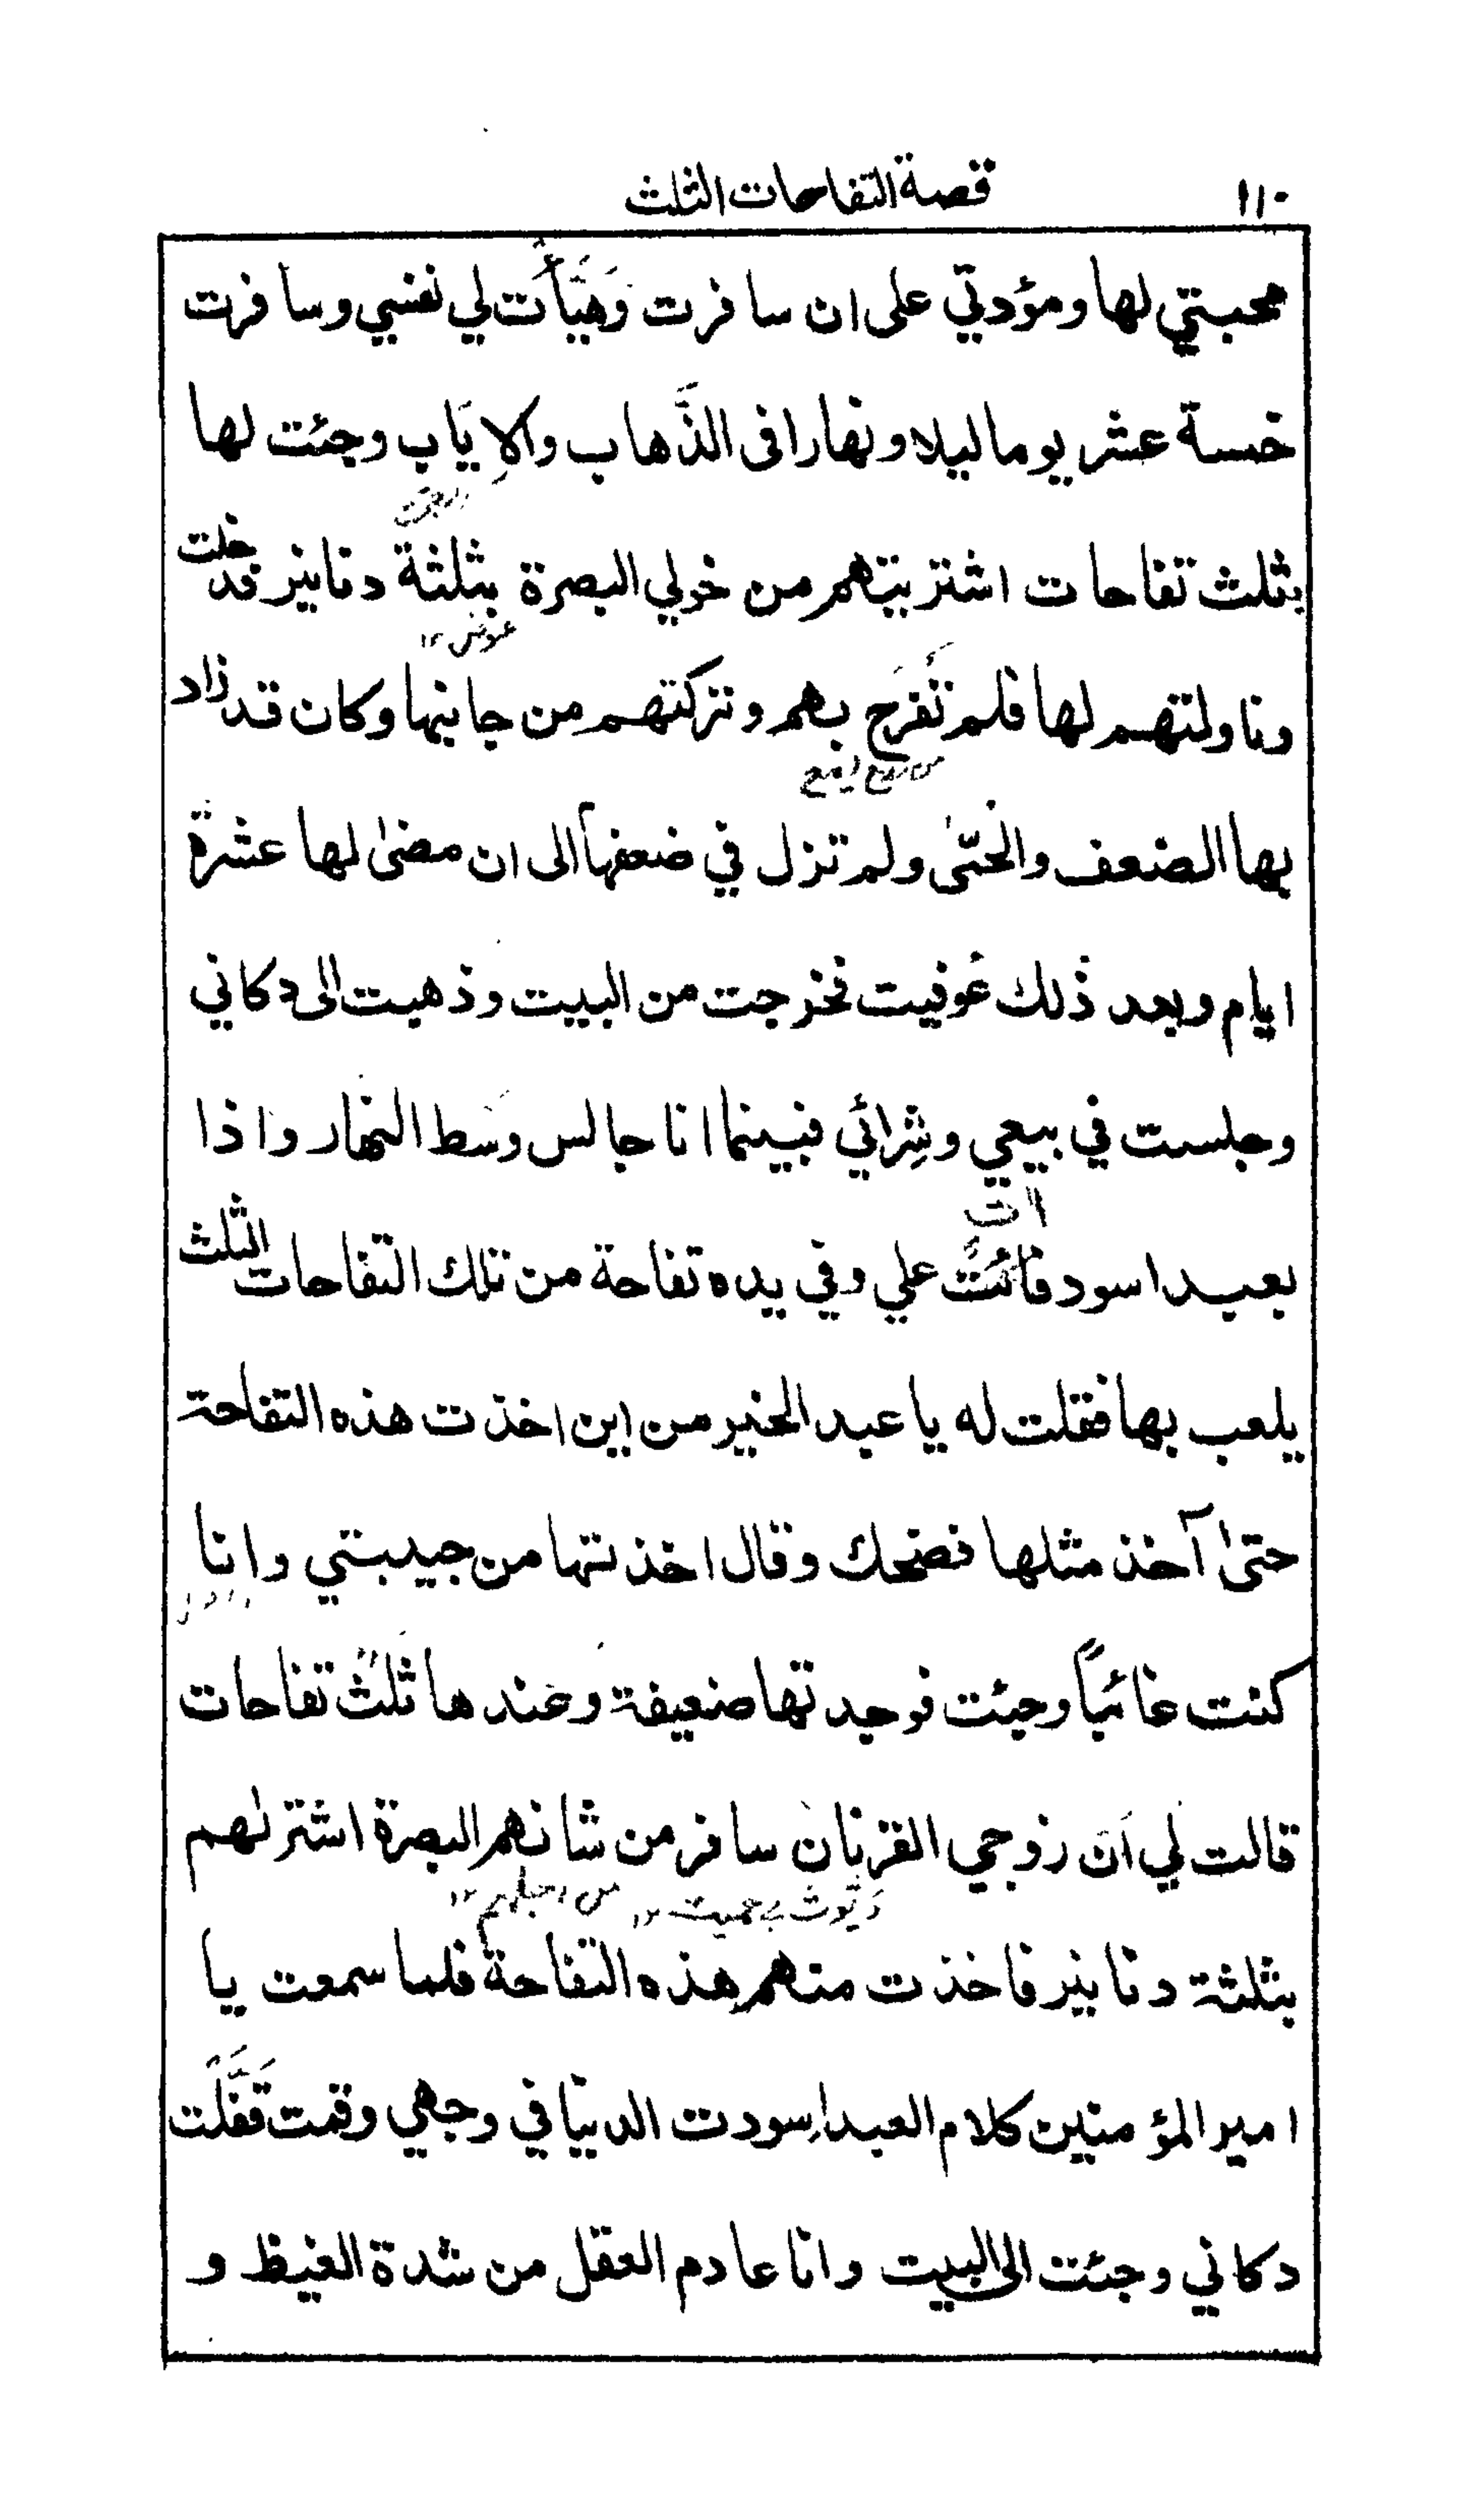 ١١٠ قصة التفاحات الثلث
محبتي لها ومؤدتي على ان سافرت وَهَيَّأْت لي نفسي وسافرت
خمسة عشر يوما ليلا ونهارا فى الذَّهاب والاِيَاب وجئت لها
بثلث تفاحات اشتريتهم من خولي البصرة بثلثة دنانير فدخلت
وناولتهم لها فلم تَفْرَح بهم وتركتهم من جانبها وكان قد زاد
بها الضعف والحُمّىٰ ولم تزل في ضعفها الى ان مضىٰ لها عشرة
ايام وبعد ذلك عُوفيت فخرجت من البيت وذهبت الى دكاني
وجلست في بيعي وشِرائي فبينما انا جالس وَسَط النهار واذا
بعبد اسود فائت علي وفي يده تفاحة من تلك التفاحات الثلث
يلعب بها فقلت له يا عبد الخير من اين اخذت هذه التفاحة
حتىٰ آخذ مثلها فضحك وقال اخذتها من حبيبتي وانا
كنت غائباً وجئت فوجدتها ضعيفة وعَندها ثَلٰثُ تفاحات
قالت لي اَن زوجي القرنان سافر من شانهم البصرة اشترٰلهم
بثلثة دنانير فاخذت منهم هذه التفاحة فلما سمعت يا
امير المؤمنين كلام العبد اسودت الدنيا في وجهي وقمت قَفَّلْت
دكاني وجئت الى البيت وانا عادم العقل من شدة الغيظ و